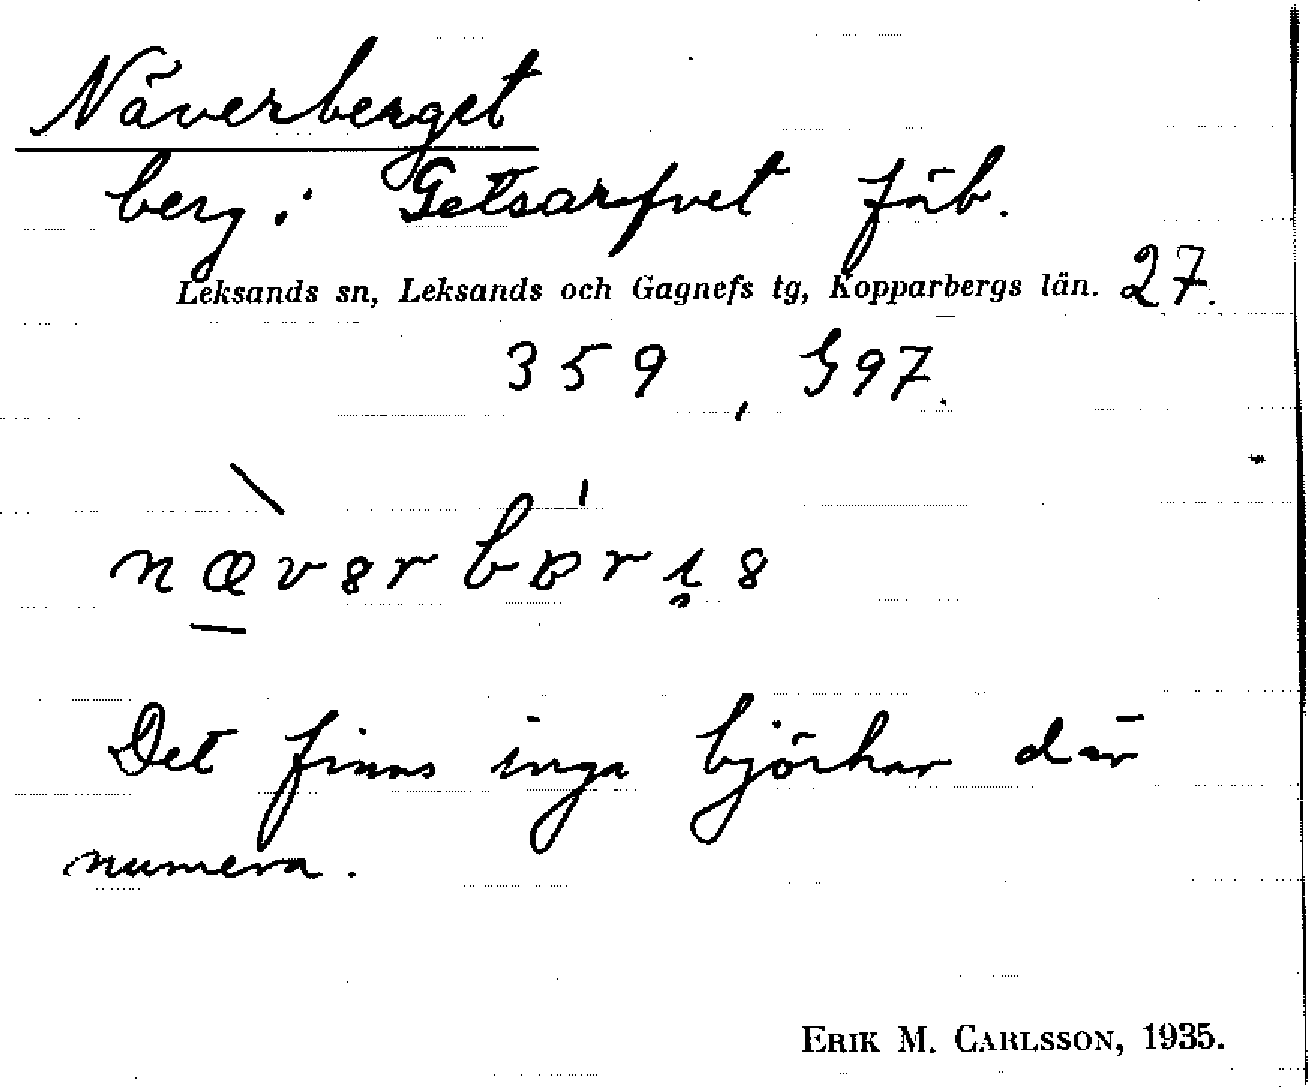 Näverberget
berg i Getsarfvet fäb.
Leksands sn, Leksands och Gagnefs tg, Kopparbergs län. 27.
359, G97.
Det finns inga björkar där
numera.
ERIK M. CARLSSON, 1935.